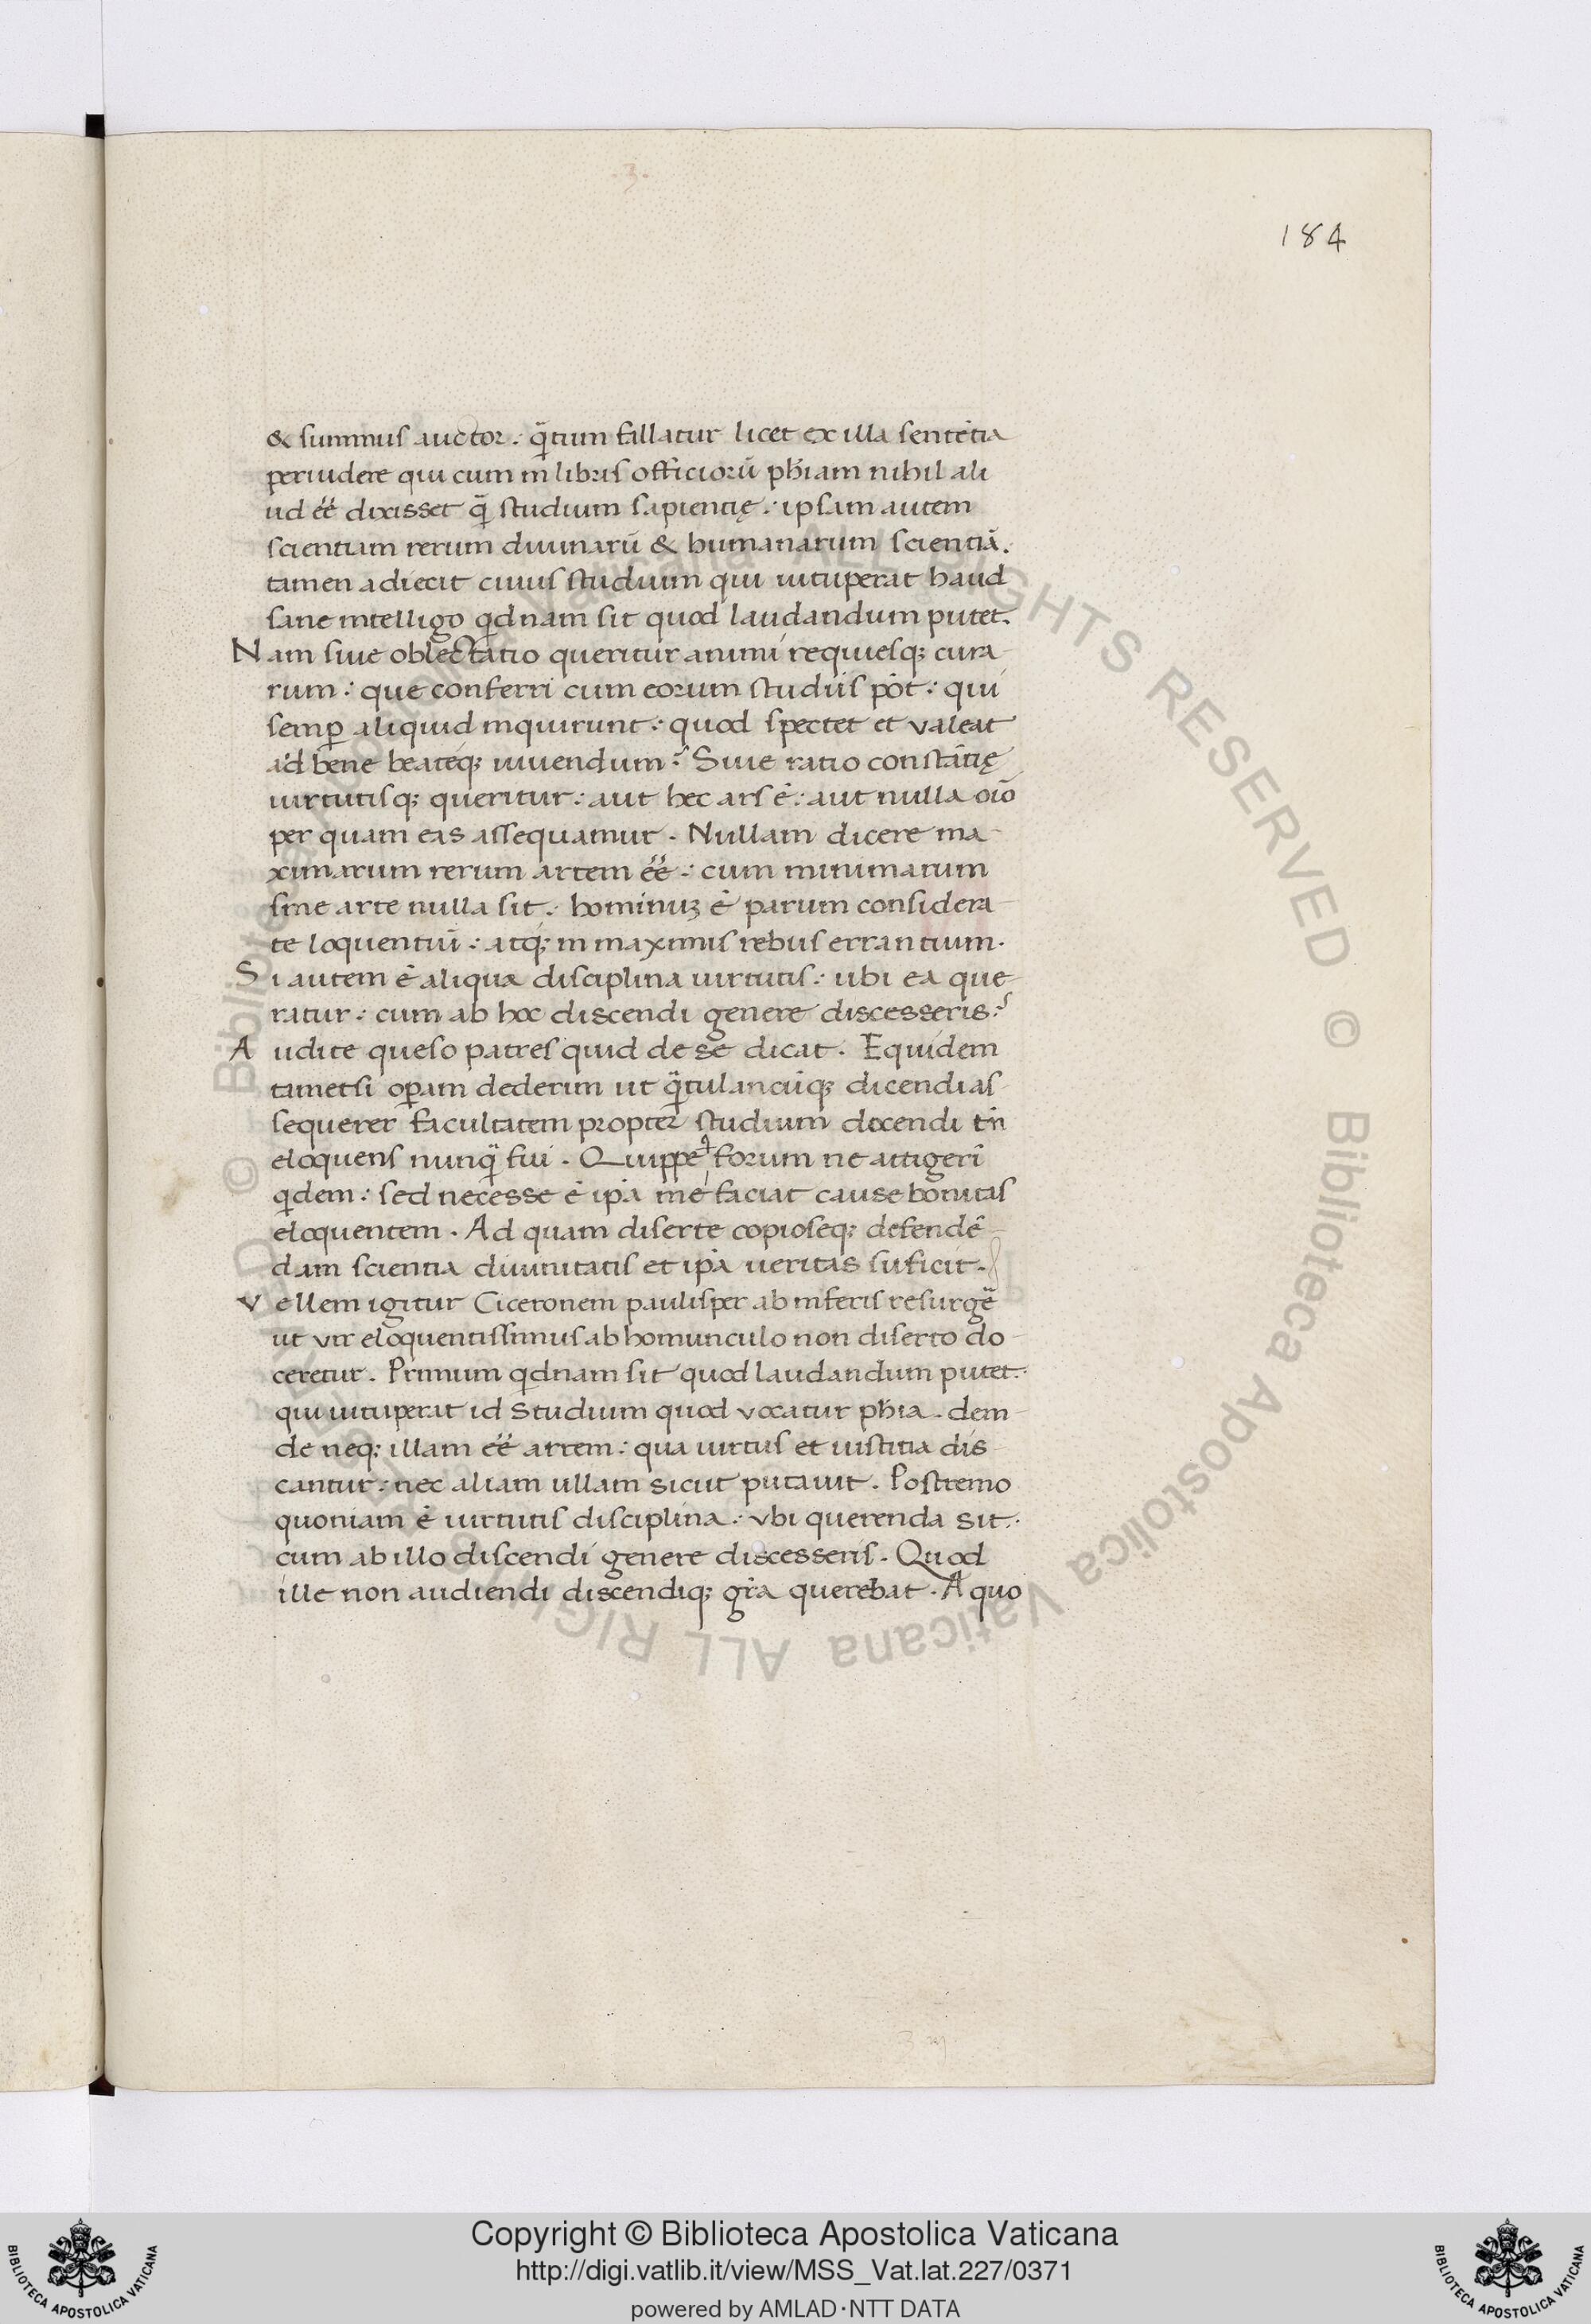 ·3·
184
& summus auctor : q̄tum fallatur licet ex illa sentētia
peruidere qui cum in libris officiorū pħiam nihil ali
ud ēē dixisset q̄ studium sapientię : ipsam autem
scientiam rerum diuinarū & humanarum scientiā.
tamen adiecit cuius studium qui uituperat haud
sane intelligo qdnam sit quod laudandum putet.
Nam siue oblectatio queritur animi requiesq; cura
rum : que conferri cum eorum studiis pōt : qui
semꝑ aliquid inquirunt : quod spectet et valeat
ad bene beateq; uiuendum? Siue ratio constātię
uirtutisq; queritur : aut hec ars ē : aut nulla oīo
per quam eas assequamur . Nullam dicere ma
ximarum rerum artem ēē : cum minimarum
sine arte nulla sit : hominuꝫ ē parum considera
te loquentiū : atq; in maximis rebus errantium.
Si autem ē aliqua disciplina uirtutis : ubi ea que
ratur : cum ab hoc discendi genere discesseris?
Audite queso patres quid de se dicat . Equidem
tametsi oꝑam dederim ut q̄tulancūq; dicendi as
sequerer facultatem propter studium docendi tn̄
eloquens nunq̄ fui . Quippe q forum ne attigerī
qdem : sed necesse ē ipā me faciat cause bonitas
eloquentem . Ad quam diserte copioseq; defendē
dam scientia diuinitatis et ipā ueritas suficit.
Vellem igitur Ciceronem paulisper ab inferis resurgē
ut vir eloquentissimus ab homunculo non diserto do
ceretur . Primum qdnam sit quod laudandum putet.
qui uituperat id studium quod vocatur pħia . dein
de neq; illam ēē artem : qua uirtus et iustitia dis
cantur : nec aliam ullam sicut putauit . Postremo
quoniam ē uirtutis disciplina : vbi querenda sit.
cum ab illo discendi genere discesseris . Quod
ille non audiendi discendiq; grā querebat . A quo
© Biblioteca Apostolica Vaticana ALL RIGHTS RESERVED © Biblioteca Apostolica Vaticana ALL RIGHTS RESERVED
Copyright © Biblioteca Apostolica Vaticana
http://digi.vatlib.it/view/MSS_Vat.lat.227/0371
powered by AMLAD·NTT DATA
BIBLIOTECA APOSTOLICA VATICANA
BIBLIOTECA APOSTOLICA VATICANA